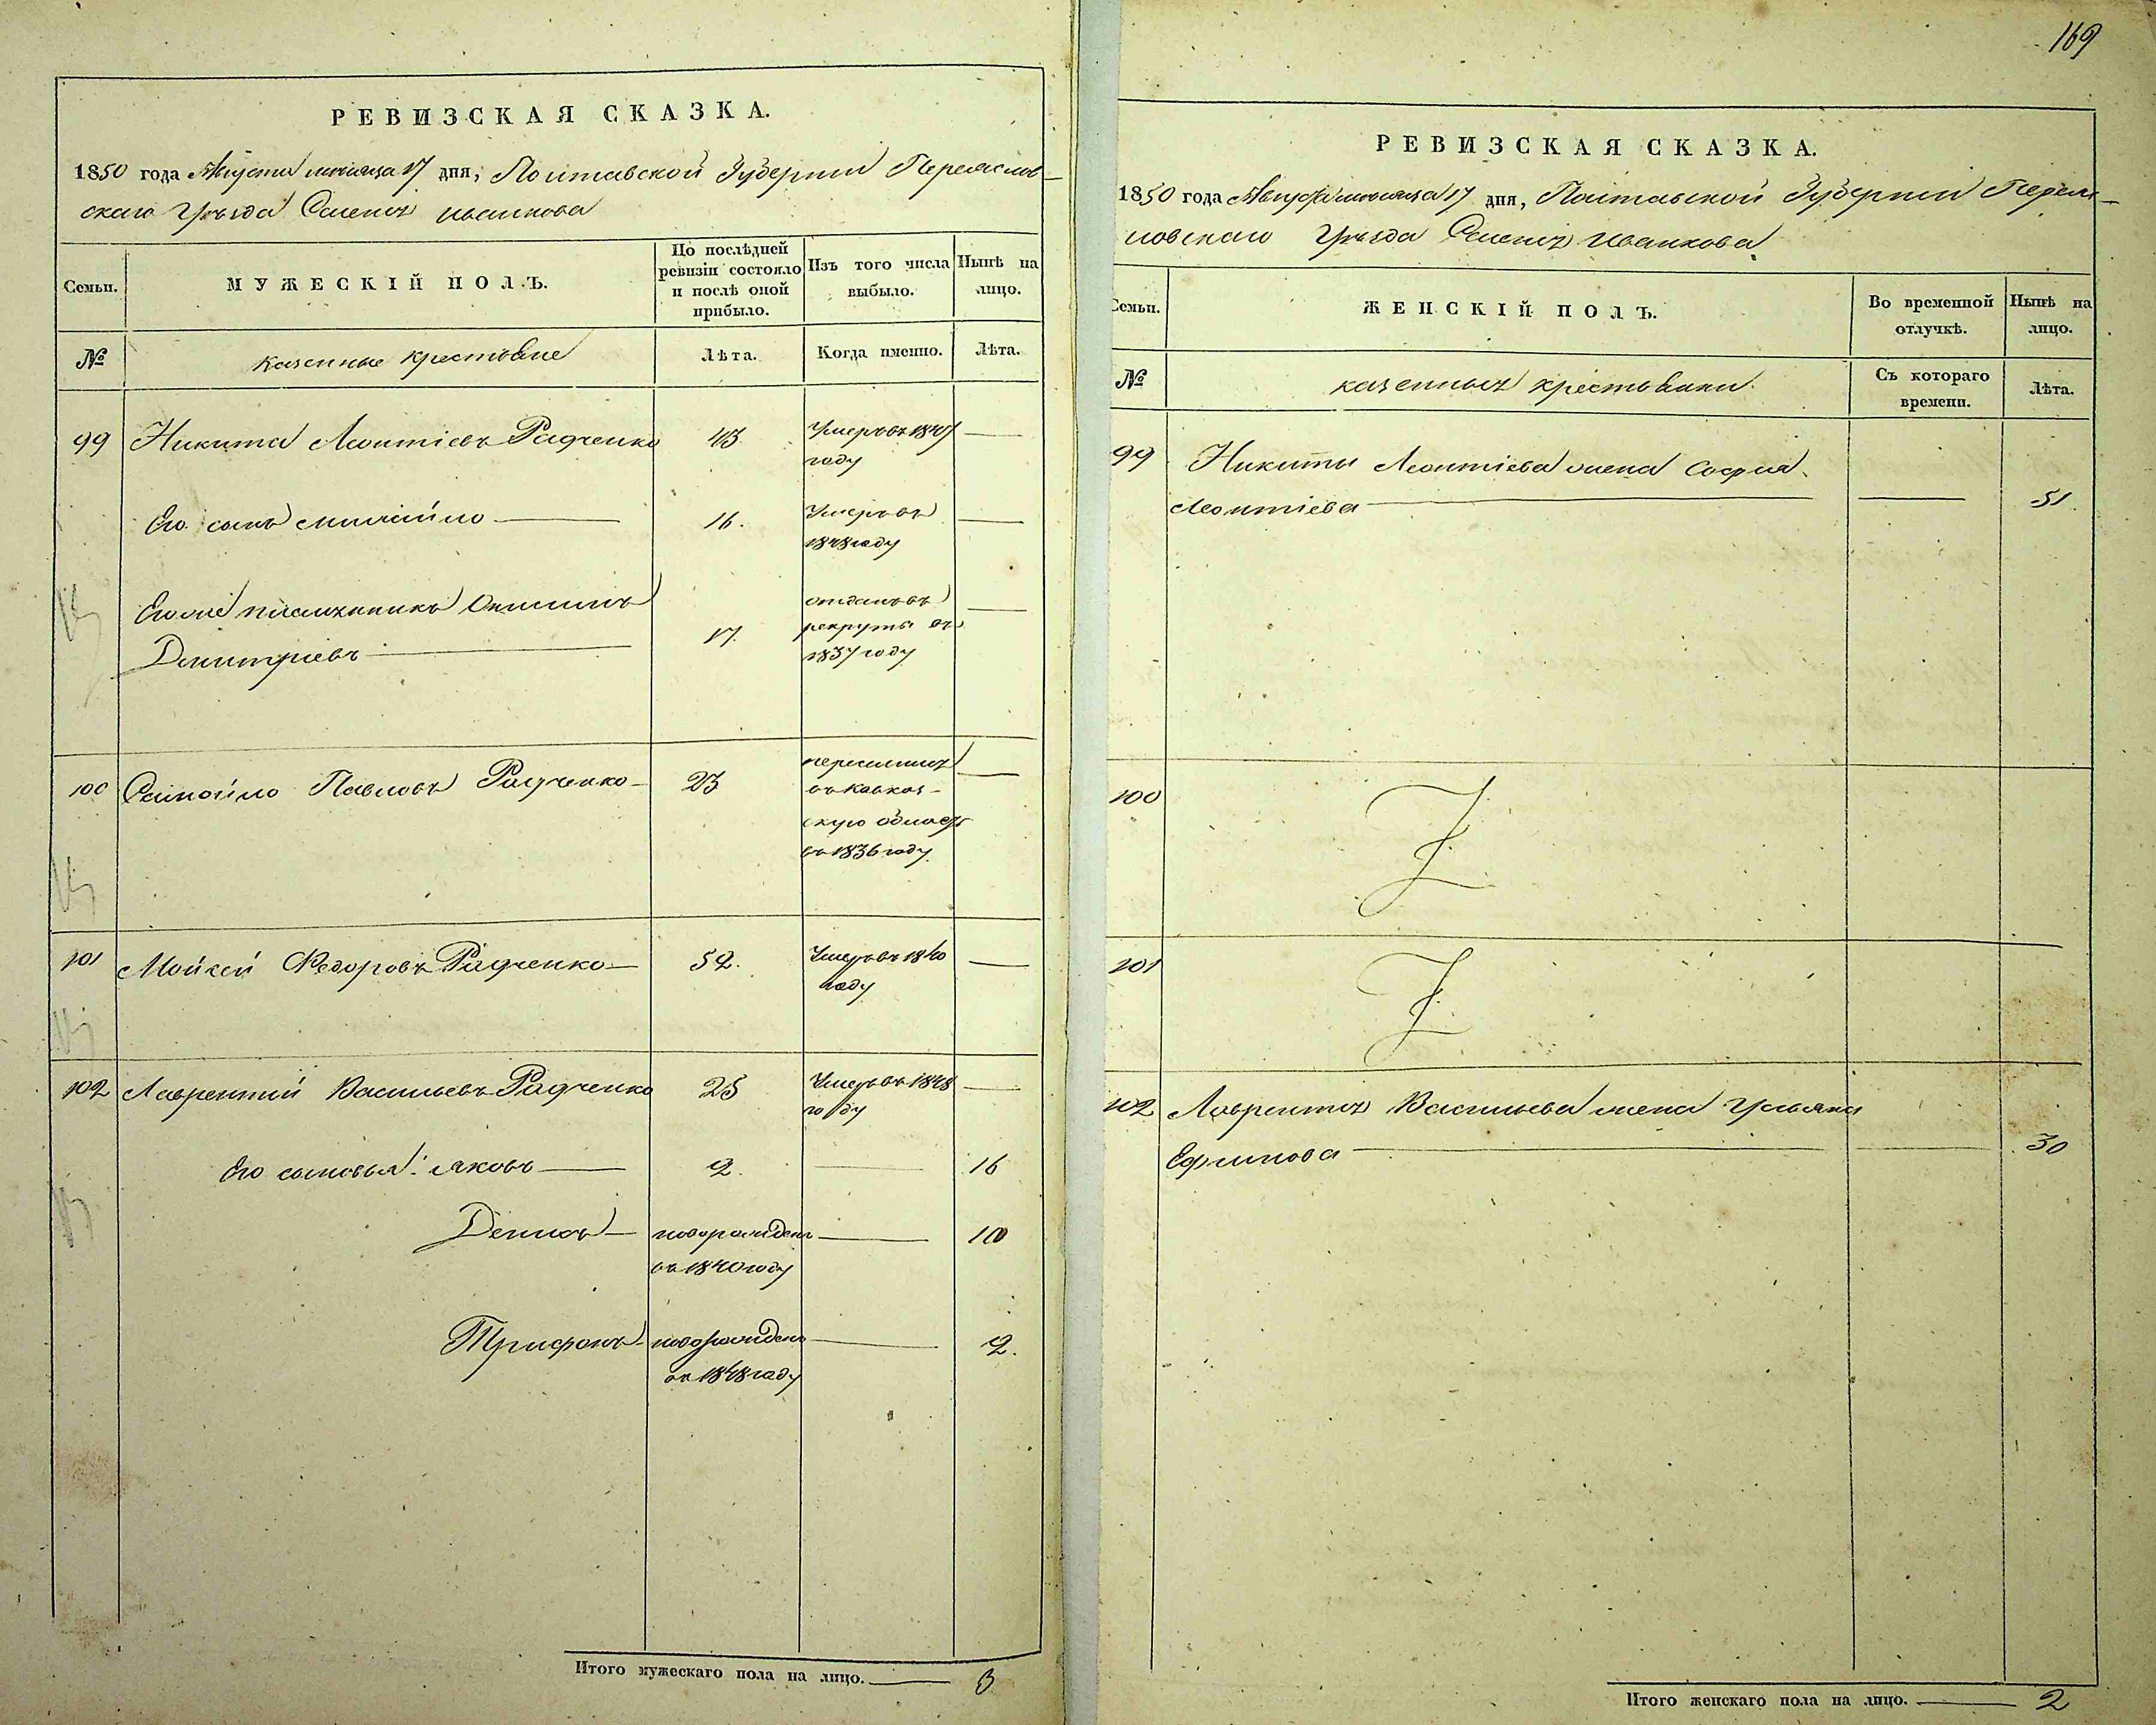 РЕВИЗСКАЯ СКАЗКА.
1850 года Августа месяца 17 дня, Полтавской Губернии Переяслов-
скаго Уѣзда Селенія Иванкова
Семьи.
МУЖЕСКІЙ ПОЛЪ.
По послѣдней
ревизіи состояло
и послѣ оной
прибыло.
Изъ того числа
выбыло.
Нынѣ на
лицо.
№
казенные крестьяне
Лѣта.
Когда именно.
Лѣта.
99 Никита Леонтіевъ Радченко 43 Умеръ въ 1847
году
Его сынъ Михайло 16. Умеръ въ
1848 году
Его же племянникъ Онисимъ
Дмитріевъ 17. отданъ въ
рекруты въ
1837 году
100 Самойло Павловъ Радченко 23 переселился
въ Кавказ-
скую область
въ 1836 году
101 Мойсей Федоровъ Радченко 52. Умеръ въ 1840
году
102 Лаврентій Васильевъ Радченко 25 Умеръ въ 1848
году
Его сыновья: Яковъ 2. 16
Денисъ новорожденъ 10
въ 1840 году
Трифонъ новорожденъ 2.
въ 1848 году
Итого мужескаго пола на лицо. 3
169
РЕВИЗСКАЯ СКАЗКА.
1850 года Августа месяца 17 дня, Полтавской Губерніи Перея-
словскаго Уѣзда Селенія Иванкова
Семьи.
ЖЕНСКІЙ ПОЛЪ.
Во временной
отлучкѣ.
Нынѣ на
лицо.
№
казенныхъ крестьянки
Съ котораго
времени.
Лѣта.
99 Никиты Леонтіева жена Софія
Леонтіева 51.
100
101
102 Лаврентія Васильева жена Ульяна
Ефимова 30
Итого женскаго пола на лицо. 2